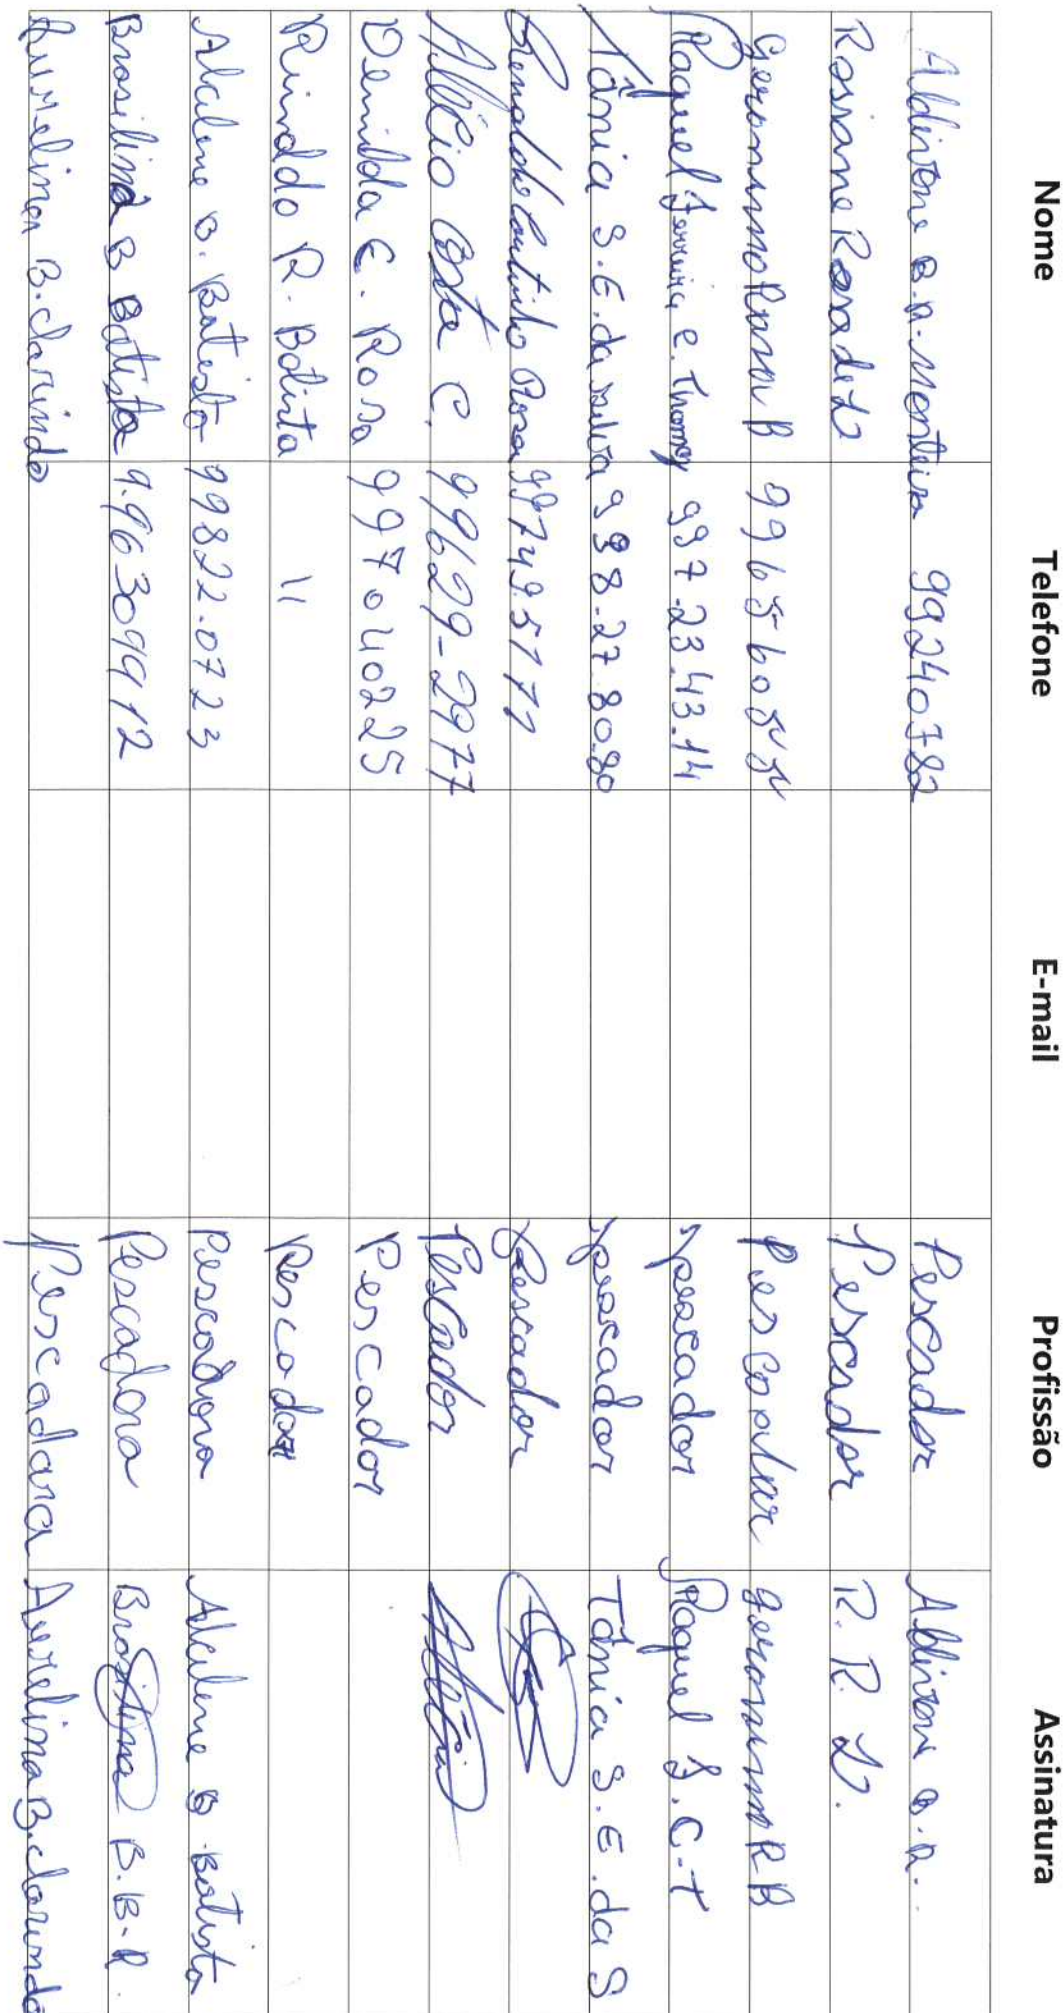 Nome Telefone E-mail Profissão Assinatura
Aldirone B.R. Monteiro 99240782 Pescador Aldirone B.R.
Rosiane Rosa de L Pescador R. R. L.
Geronimo Rosa B 996556055 Pescador Geronimo R B
Raquel Ferreira C. Thomaz 997.23.43.14 pescador Raquel F.C.T
Tânia S.E. da Silva 998.27.80.80 pescador Tânia S.E. da S
Coutinho Rosa 997495171 Pescador
Costa C. 99629-2977 Pescador
Denilda C. Rosa 997040225 Pescador
Rinaldo R. Batista " Pescador
Alcilene B. Batista 99822.0723 Pescadora Alcilene B. Batista
Brasilina B Batista 9.96309912 Pescadora Brasilina B.B.R.
Aurelina B. Clarindo Pescadora Aurelina B. Clarindo